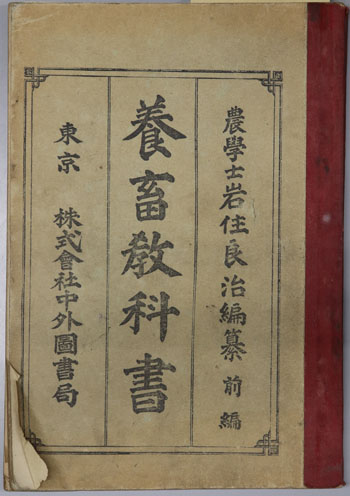 農學士岩住良治編纂 前編
養畜教科書
東京 株式會社中外圖書局